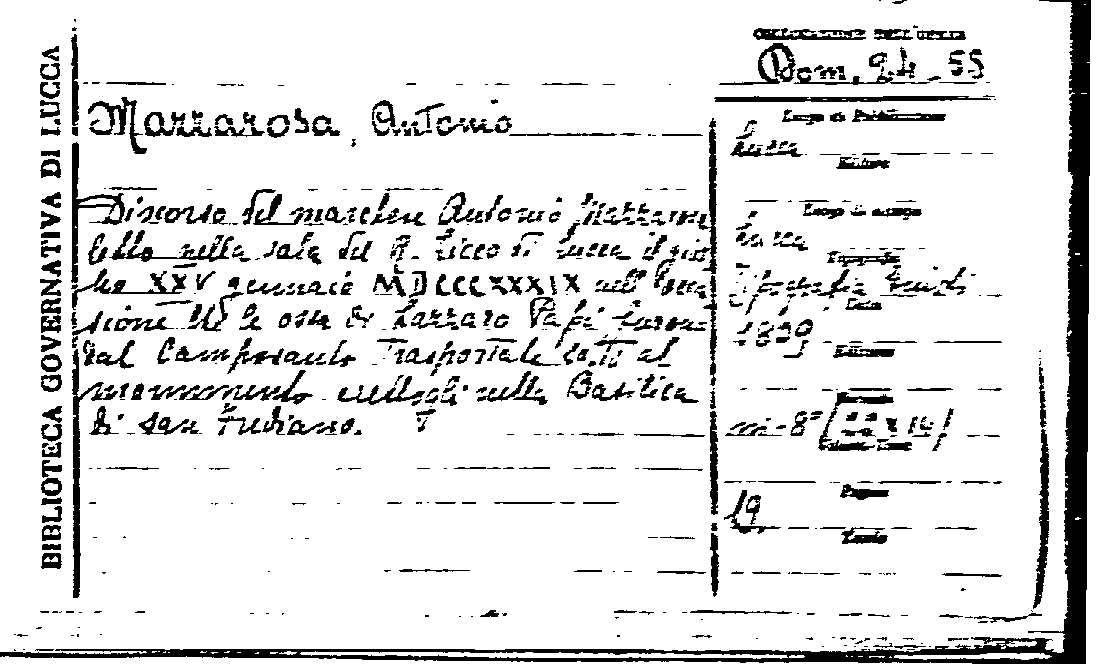 BIBLIOTECA GOVERNATIVA DI LUCCA
COLLOCAZIONE DELL'OPERA
Dom. 24-55
Mazzarosa, Antonio
Discorso del marchese Antonio Mazzarosa
letto nella sala del R. Liceo di Lucca il gior
no XXV gennaio MDCCCXXXIX nell'occa
sione che le ossa di Lazzaro Papi furono
dal Camposanto Trasportate sotto al
monumento erettogli nella Basilica
di san Frediano.
Luogo di Pubblicazione
Lucca
Editore
Luogo di stampa
Lucca
Tipografia
Tipografia Giusti
Data
1839
Edizione
Formato
in-8°
Pagine
19